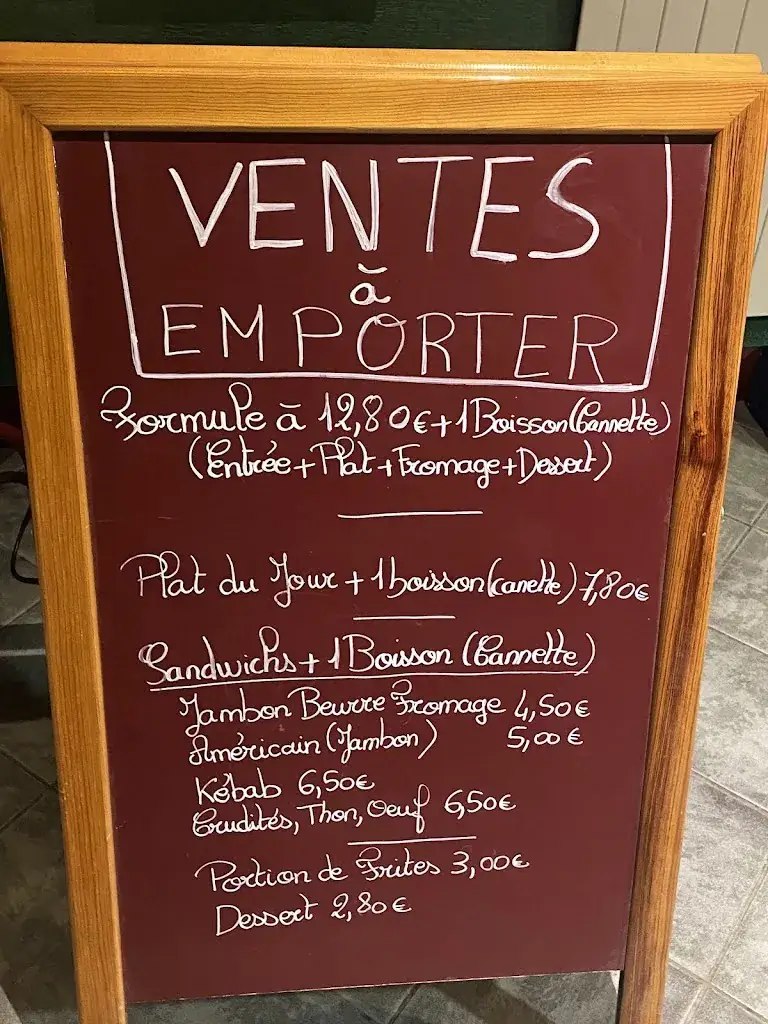 VENTES
à
EMPORTER
Formule à 12,80€+1Boisson(Cannette)
(Entrée+Plat+Fromage+Dessert)
Plat du Jour + 1boisson(canette) 7,80€
Sandwichs+1Boisson (Cannette)
Jambon Beurre Fromage 4,50€
Américain (Jambon) 5,00€
Kébab 6,50€
Crudités, Thon, Oeuf 6,50€
Portion de Frites 3,00€
Dessert 2,80€